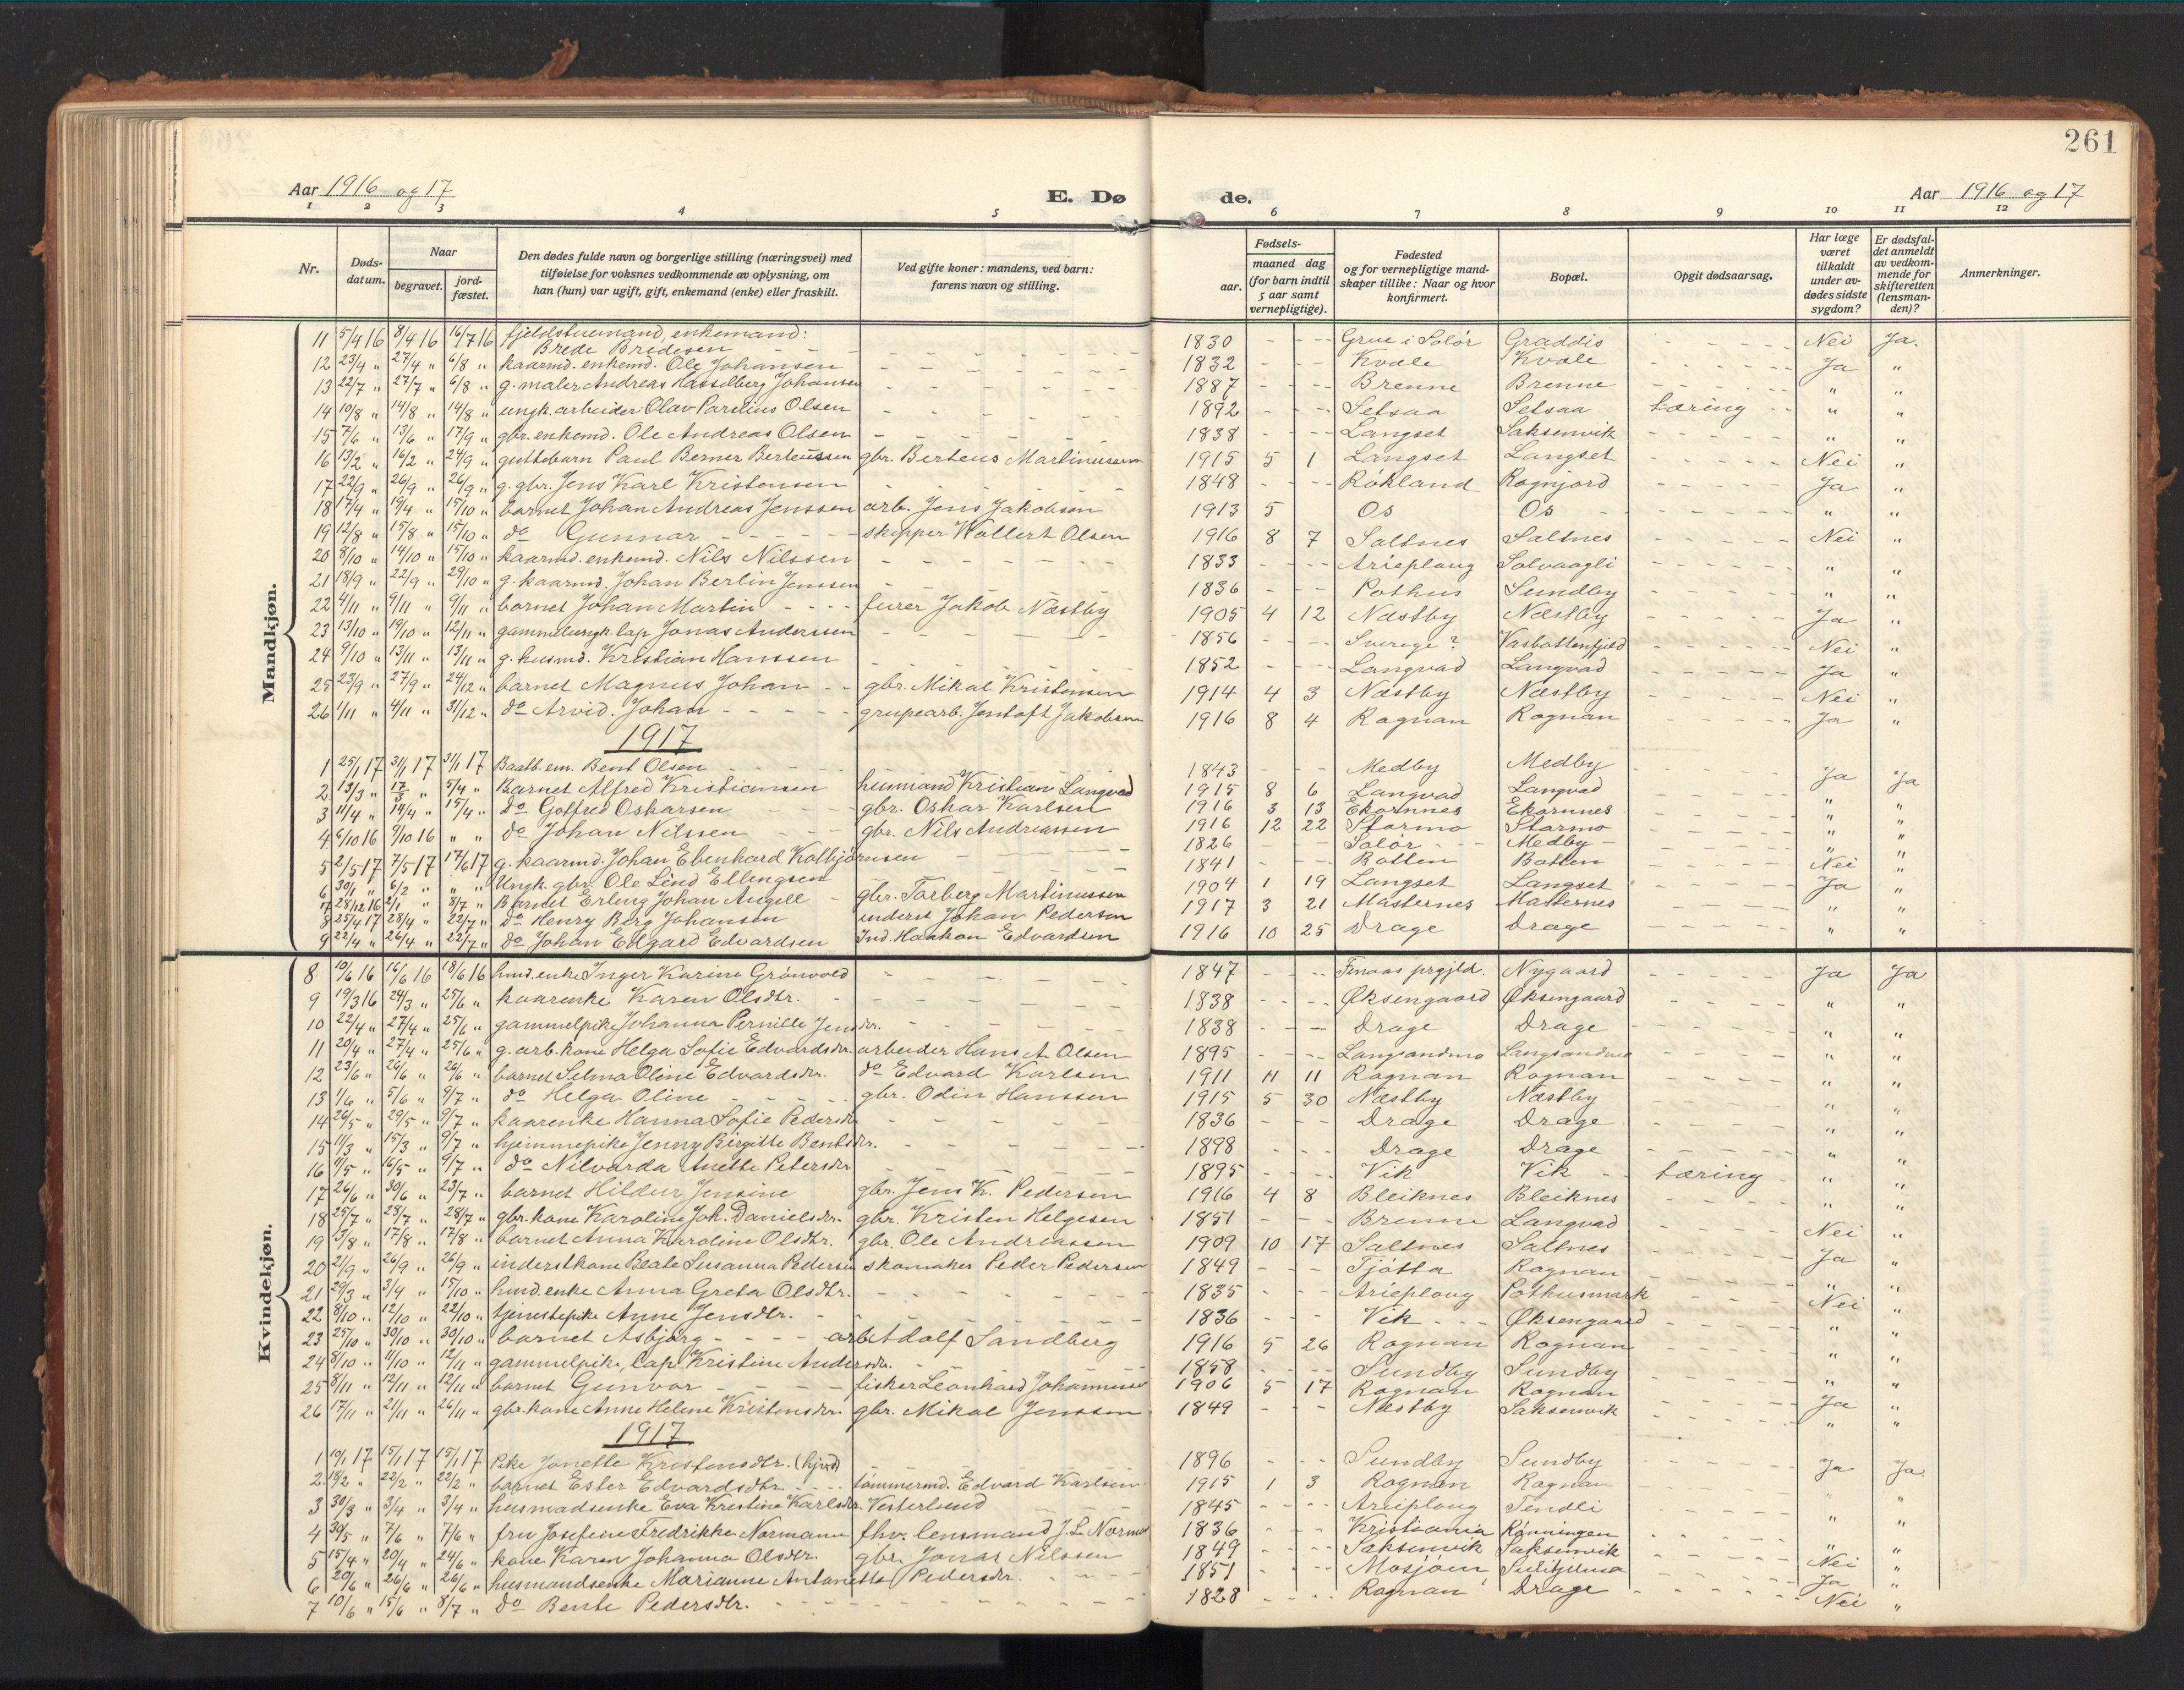 261
Aar 1916 og 17 E. Dø de. Aar 1916 og 17
1 2 3 4 5 6 7 8 9 10 11 12
Nr. Døds-datum. Naar begravet. jord-fæstet. Den dødes fulde navn og borgerlige stilling (næringsvei) med tilføielse for voksnes vedkommende av oplysning, om han (hun) var ugift, gift, enkemand (enke) eller fraskilt. Ved gifte koner: mandens, ved barn: farens navn og stilling. Fødsels- aar. maaned dag (for barn indtil 5 aar samt vernepligtige). Fødested og for vernepligtige mand-skaper tillike: Naar og hvor konfirmert. Bopæl. Opgit dødsaarsag. Har læge været tilkaldt under av-dødes sidste sygdom? Er dødsfal-det anmeldt av vedkom-mende for skifteretten (lensman-den)? Anmerkninger.
Mandkjøn.
11 5/4 16 8/4 16 16/7 16 fjeldstuemand, enkemand: Brede Bredesen 1830 Grue i Solör Graddis Nei Ja.
12 23/4 " 27/4 " 6/8 " kaarmd. enkemd. Ole Johansen 1832 Kvale Kvale Ja "
13 22/7 " 27/7 " 6/8 " g. maler Andreas Hasselberg Johansen 1887 Brenne Brenne " "
14 10/8 " 14/8 " 14/8 " ungk. arbeider Olav Parelius Olsen 1892 Setsaa Setsaa tæring " "
15 7/6 " 13/6 " 17/9 " gbr. enkemd. Ole Andreas Olsen 1838 Langset Saksenvik " "
16 13/2 " 16/2 " 24/9 " guttebarn Paul Berner Berteussen gbr. Berteus Martinussen 1915 5 1 Langset Langset Nei "
17 22/9 " 26/9 " 26/9 " g. gbr. Jens Karl Kristensen 1848 Rökland Rognjord Ja "
18 17/4 " 19/4 " 15/10 " barnet Johan Andreas Jenssen arb. Jens Jakobsen 1913 5 Os Os " "
19 12/8 " 15/8 " 15/10 " do Gunnar skipper Wollert Olsen 1916 8 7 Saltnes Saltnes Nei "
20 8/10 " 14/10 " 15/10 " kaarmd. enkemd. Nils Nilssen 1833 Arieploug Solvaagli " "
21 18/9 " 22/9 " 29/10 " g. kaarmd. Johan Berlin Jenssen 1836 Pothus Sundby " "
22 4/11 " 9/11 " 9/11 " barnet Johan Martin furer Jakob Næstby 1905 4 12 Næstby Næstby Ja "
23 13/10 " 19/10 " 12/11 " gammelungk. lap Jonas Anderssen 1856 Sverige? Vasbottenfjeld Nei "
24 9/10 " 13/11 " 13/11 " g. husmd. Kristian Hanssen 1852 Langvad Langvad Ja "
25 23/9 " 27/9 " 24/12 " barnet Magnus Johan gbr. Mikal Kristensen 1914 4 3 Næstby Næstby Nei "
26 1/11 " 4/11 " 31/12 " do Arvid. Johan grupearb. Jentoft Jakobsen 1916 8 4 Rognan Rognan Ja "
1917
1 25/1 17 31/1 17 31/1 17 Baatb. em. Bent Olsen 1843 Medby Medby Ja Ja
2 13/3 " 17/3 " 5/4 " Barnet Alfred Kristiansen husmand Kristian Langvad 1915 8 6 Langvad Langvad " "
3 11/4 " 14/4 " 15/4 " do Gotfred Oskarsen gbr. Oskar Karlsen 1916 3 13 Ekornnes Ekornnes " "
4 6/10 16 9/10 16 " " do Johan Nilssen gbr. Nils Andreassen 1916 12 22 Stormo Stormo " "
5 2/5 17 7/5 17 17/6 17 g. kaarmd. Johan Ebenhard Kolbjörnsen 1826 Solör Medby " "
6 30/1 " 6/2 " " " Ungk. gbr. Ole Lind Ellingsen 1841 Botten Botten Nei "
7 28/12 16 2/1 " 8/7 " Barnet Erling Johan Angell gbr. Torberg Martinussen 1904 1 19 Langset Langset Ja "
8 25/4 17 28/4 " 22/7 " do Henry Berg Johansen inderst Johan Pedersen 1917 3 21 Masternes Masternes " "
9 22/4 " 26/4 " 22/7 " do Johan Edgard Edvardsen Ind. Haakon Edvardsen 1916 10 25 Drage Drage " "
Kvindekjøn.
8 10/6 16 16/6 16 18/6 16 husd. enke Inger Karine Grönvold 1847 prgjld. Nygaard Ja Ja
9 19/3 16 24/3 " 25/6 " kaarenke Karen Olsdtr. 1838 Øksengaard Øksengaard " "
10 22/4 " 27/4 " 25/6 " gammelpike Johanna Pernille Jensdtr. 1838 Drage Drage " "
11 20/4 " 27/4 " 25/6 " g. arb. kone Helga Sofie Edvardsdtr. arbeider Hans A Olsen 1895 Langsandmo Langsandmo " "
12 23/6 " 26/6 " 26/6 " barnet Selma Oline Edvardsdtr. do Edvard Karlsen 1911 11 11 Rognan Rognan " "
13 1/6 " 5/6 " 9/7 " do Helga Oline gbr. Odin Hanssen 1915 5 30 Næstby Næstby " "
14 26/5 " 29/5 " 9/7 " kaarenke Hanna Sofie Pedersdtr 1836 Drage Drage " "
15 11/3 " 15/3 " 9/7 " hjemmepike Jenny Birgitte Bentsdtr. 1898 Drage Drage " "
16 11/5 " 16/5 " 9/7 " do Nilvarda Anette Petersdtr 1895 Vik Vik tæring " "
17 26/6 " 30/6 " 23/7 " barnet Hildur Jensine gbr. Jens K. Pedersen 1916 4 8 Bleiknes Bleiknes " "
18 25/7 " 28/7 " 28/7 " gbr. kone Karoline Joh. Danielsdtr. gbr. Kristen Helgesen 1851 Brenne Langvad Nei "
19 13/8 " 17/8 " 17/8 " barnet Anna Karoline Olsdtr. gbr. Ole Andreassen 1909 10 17 Saltnes Saltnes Ja "
20 21/9 " 26/9 " 26/9 " inderstkone Beate Susanna Pedersen skomaker Peder Pedersen 1849 Tjötta Rognan " "
21 29/3 " 3/4 " 15/10 " husd. enke Anna Greta Olsdtr. 1835 Arieploug Pothusmark Nei "
22 8/10 " 12/10 " 22/10 " tjenestepike Anne Jensdtr. 1836 Vik Øksengaard " "
23 25/10 " 30/10 " 30/10 " barnet Asbjörg arb. Sandberg 1916 5 26 Rognan Rognan " "
24 8/10 " 11/10 " 12/11 " gammelpike, lap Kristine Andersdtr. 1858 Sundby Sundby " "
25 8/11 " 12/11 " 12/11 " barnet Gunvor fisker Leonhard Johannessen 1906 5 17 Rognan Rognan Ja "
26 17/11 " 21/11 " 26/11 " gbr. kone Anne Helene Kristensdtr. gbr. Mikal Jenssen 1849 Næstby Saksenvik " "
1917
1 10/1 17 15/1 17 15/1 17 Pike Jonette Kristensdtr. 1896 Sundby Sundby Ja Ja.
2 18/2 " 22/2 " 22/2 " barnet Ester Edvardsdtr. tömmermd. Edvard Karlsen 1915 1 3 Rognan Rognan " "
3 30/3 " 3/4 " 3/4 " husmadsenke Eva Kristine Karlsdtr. Vesterlund 1845 Arieploug Tendli " "
4 30/5 " 7/6 " 7/6 " fru Josefine Fredrikke Normann fhv. lensmand J. L. Normann 1836 Kristiania Rönningen " "
5 15/4 " 20/4 " 24/6 " kone Karen Johanna Olsdtr. gbr. Jonas Nilssen 1849 Saksenvik Saksenvik Nei "
6 20/6 " 26/6 " 26/6 " husmandsenke Marianne Antonetta Pedersdtr. 1851 Mosjöen Sulitjelma Ja "
7 10/6 " 15/6 " 8/7 " do Bente Pedersdtr. 1828 Rognan Drage Nei "